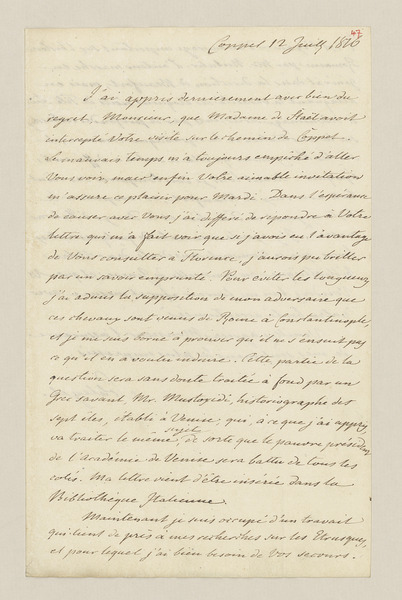 47
Coppet 12 Juill 1816
J'ai appris dernièrement avec bien du
regret, Monsieur, que Madame de Staël avoit
intercepté Votre visite sur le chemin de Coppet.
Le mauvais temps m'a toujours empêché d'aller
Vous voir, mais enfin Votre aimable invitation
m'assure ce plaisir pour Mardi. Dans l'espérance
de causer avec Vous, j'ai différé de repondre à Votre
lettre qui m'a fait voir que si j'avois eu l'avantage
de Vous consulter à Florence, j'aurois pu briller
par un savoir emprunté. Pour eviter les longueurs
j'ai admis la supposition de mon adversaire que
ces chevaux sont venus de Rome à Constantinople,
et je me suis borné à prouver qu'il ne s'ensuit pas
ce qu'il en a voulu induire. Cette partie de la
question sera sans doute traitée à fond par un
Grec savant, Mr. Mustoxidi, historiographe des
sept iles, établi à Venise, qui, à ce que j'ai appris
va traiter le même sujet, de sorte que le pauvre président
de l'Académie de Venise sera battu de tous les
cotés. Ma lettre vient d'être insérée dans la
Bibliothèque Italienne.
Maintenant je suis occupé d'un travail
qui tient de près à mes recherches sur les Etrusques,
et pour lequel j'ai bien besoin de Vos secours.